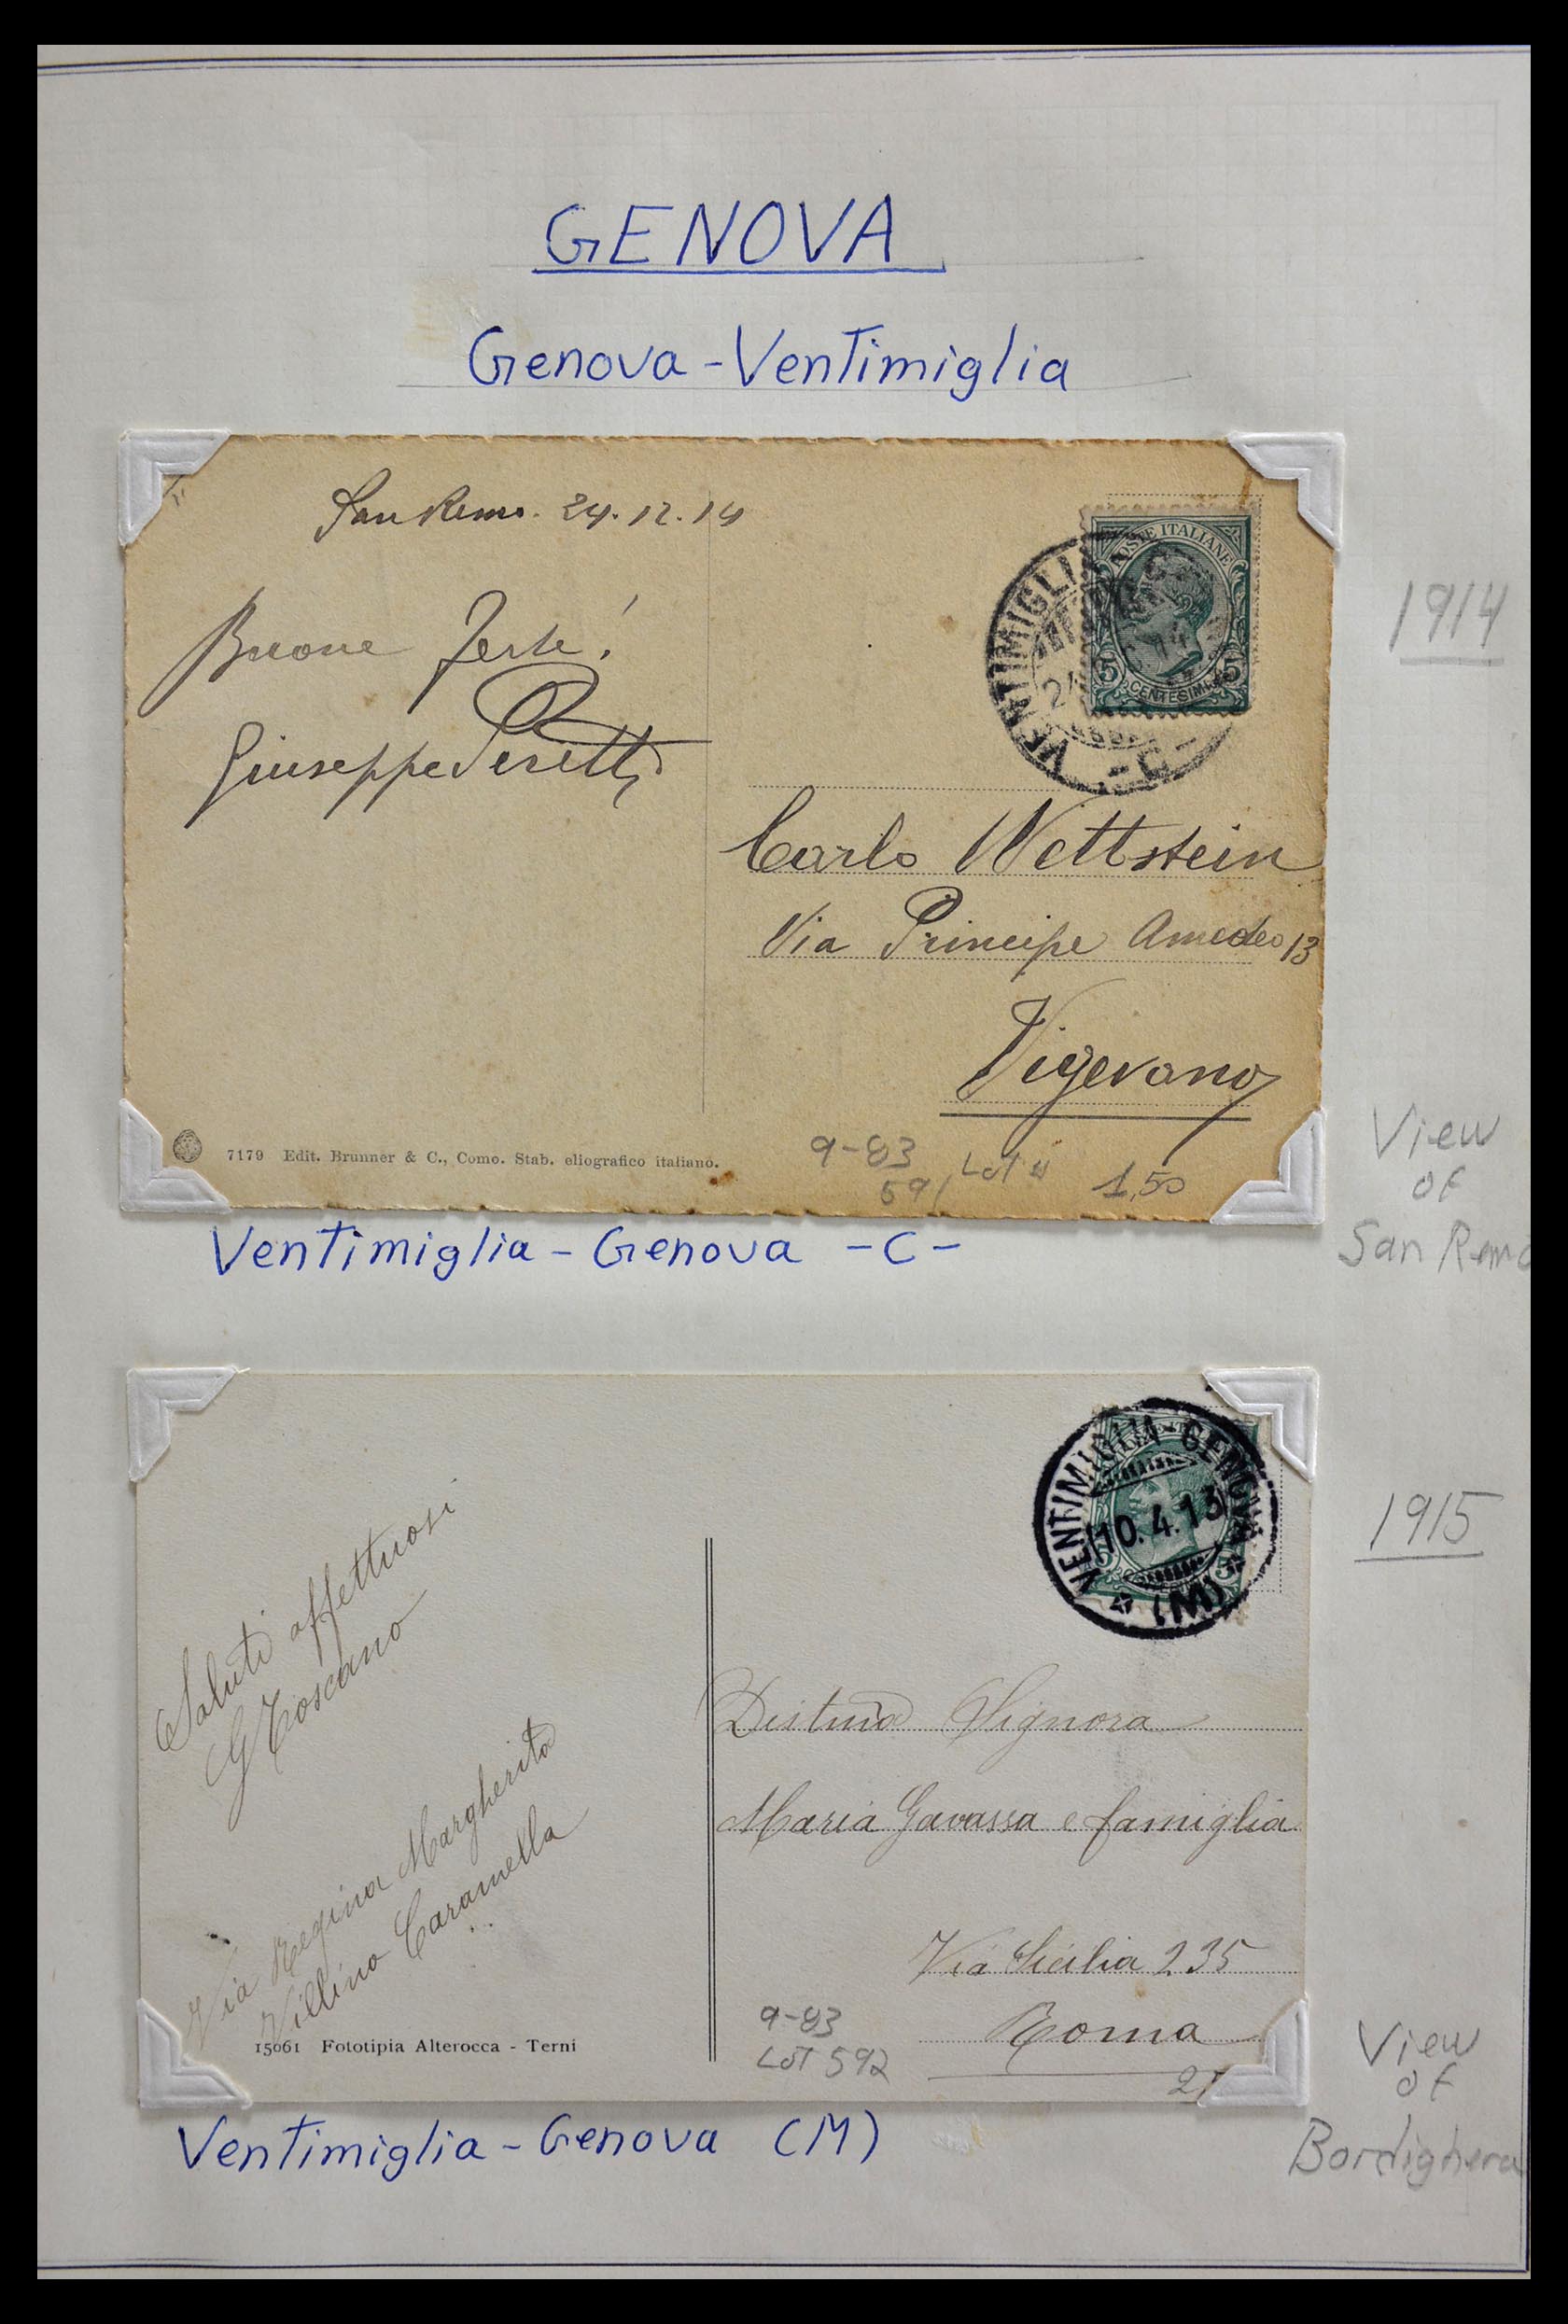 GENOVA
Genova - Ventimiglia
San Remo. 24.12.14
Buone Feste!
Giuseppe
POSTE ITALIANE
5 CENTESIMI 5
VENTIMIGLI
-C-
1914
Carlo Wettstein
Via Principe Amedeo 13
Vigevano
7179 Edit. Brunner & C., Como. Stab. eliografico italiano.
9-83
591
Lot #
1,50
View
of
San Remo
Ventimiglia - Genova -C-
VENTIMIGLIA-GENOVA
10.4.13
(M)
5 5
1915
Saluti affettuosi
G Toscano
Via Regina Margherita
Villino Caramella
Distinta Signora
Maria Gavassa e famiglia
Via Sicilia 235
Roma
15061 Fototipia Alterocca - Terni
9-83
LOT 592
View
of
Bordighera
Ventimiglia - Genova (M)